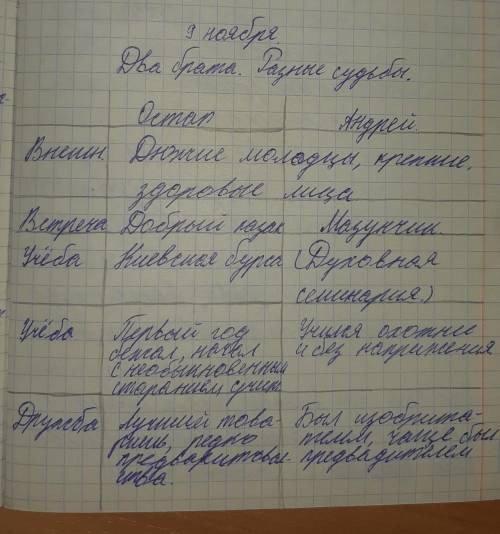 9 ноября.
Два брата. Разные судьбы.
Остап Андрей
Внешн. Дюжие молодцы, крепкие,
здоровые лица
Встреча Добрый казак Мазунчик.
Учёба Киевская бурса (Духовная
семинария.)
Учёба Первый год Учился охотнее
бежал, начал и без напряжения
с необыкновенным
старанием учить
Дружба Лучший това- Был изобрита-
рищь, редко телем, чаще был
предварительс- предвадителем
ства.